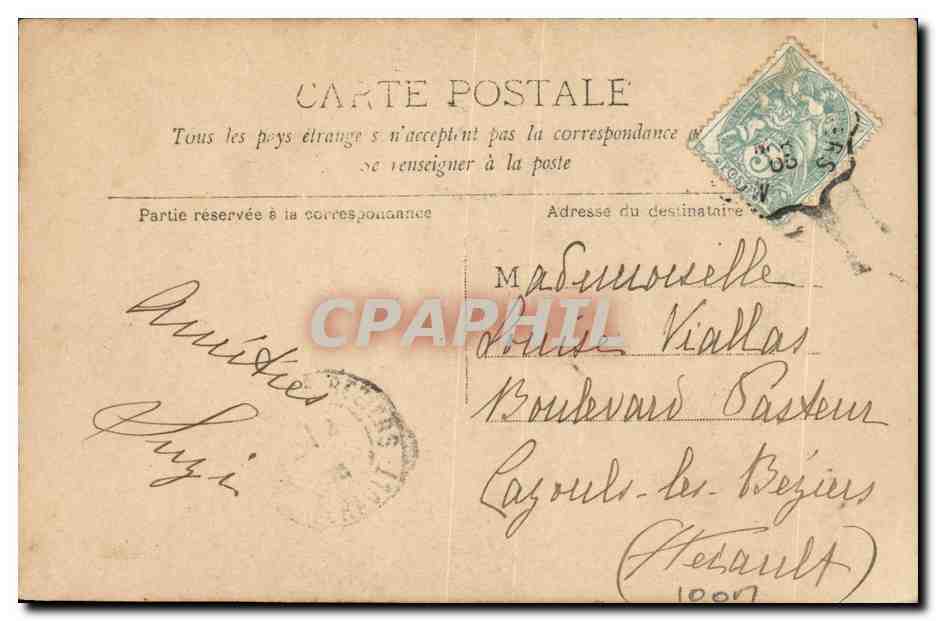 CARTE POSTALE
Tous les pays étrangers n'acceptent pas la correspondance
Se renseigner à la poste
Partie réservée à la correspondance
Adresse du destinataire
Amitiés
Suzi
Mademoiselle
Louise Viallas
Boulevard Pasteur
Cazouls-les-Béziers
(Hérault)
CPAPHIL